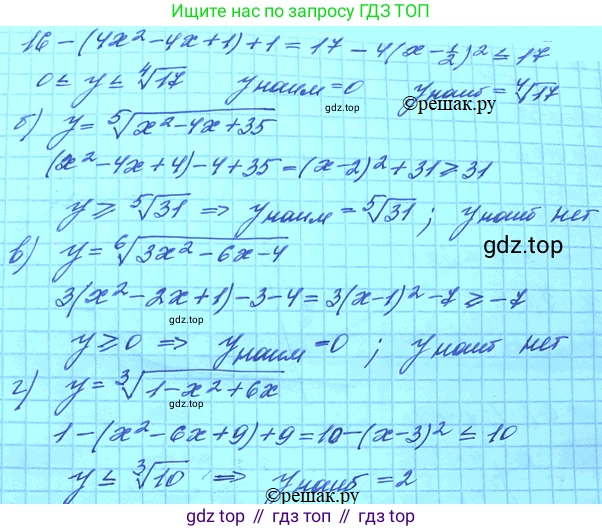 Ищите нас по запросу ГДЗ ТОП
16 - (4x² - 4x + 1) + 1 = 17 - 4(x - 1/2)² ≤ 17
0 ≤ y ≤ ⁴√17 yнаим = 0 yнаиб = ⁴√17
gdz.top ©решак.ру
б) y = ⁵√(x² - 4x + 35)
(x² - 4x + 4) - 4 + 35 = (x - 2)² + 31 ≥ 31
y ≥ ⁵√31 ⇒ yнаим = ⁵√31 ; yнаиб нет
gdz.top
в) y = ⁶√(3x² - 6x - 4)
gdz.top
3(x² - 2x + 1) - 3 - 4 = 3(x - 1)² - 7 ≥ -7
gdz.top
y ≥ 0 ⇒ yнаим = 0 ; yнаиб нет
г) y = ³√(1 - x² + 6x)
gdz.top
1 - (x² - 6x + 9) + 9 = 10 - (x - 3)² ≤ 10
y ≤ ³√10 ⇒ yнаиб = 2
©решак.ру
gdz.top // gdz.top // gdz.top // gdz.top